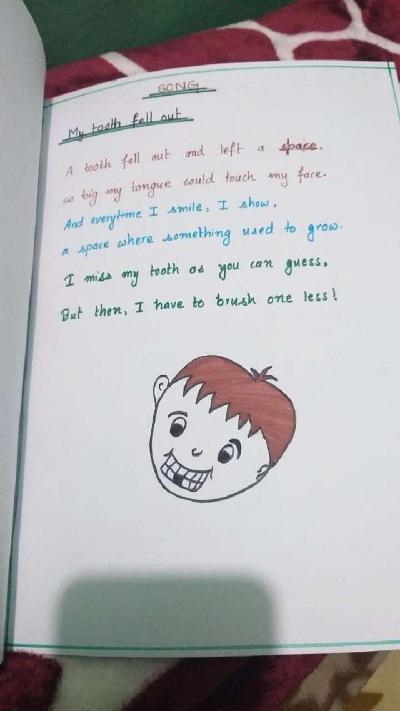 SONG
My tooth fell out
A tooth fell out and left a space.
so big my tongue could touch my face.
And everytime I smile, I show.
a space where something used to grow.
I miss my tooth as you can guess.
But then, I have to brush one less!